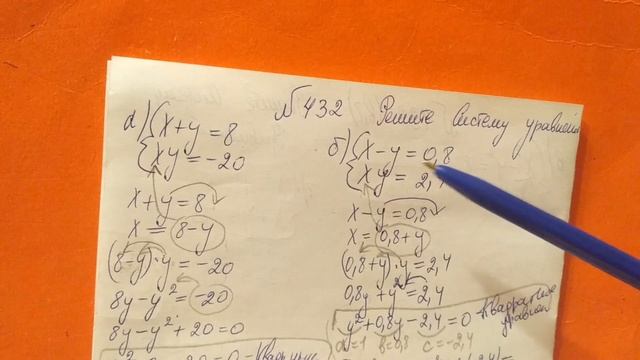 №432 Решите систему уравнений
а) x+y=8
xy=-20
x+y=8
x=8-y
(8-y)·y=-20
8y-y²=-20
8y-y²+20=0
б) x-y=0,8
xy=2,4
x-y=0,8
x=0,8+y
(0,8+y)·y=2,4
0,8y+y²=2,4
y²+0,8y-2,4=0 - квадратное
уравнен
a=1 b=0,8 c=-2,4